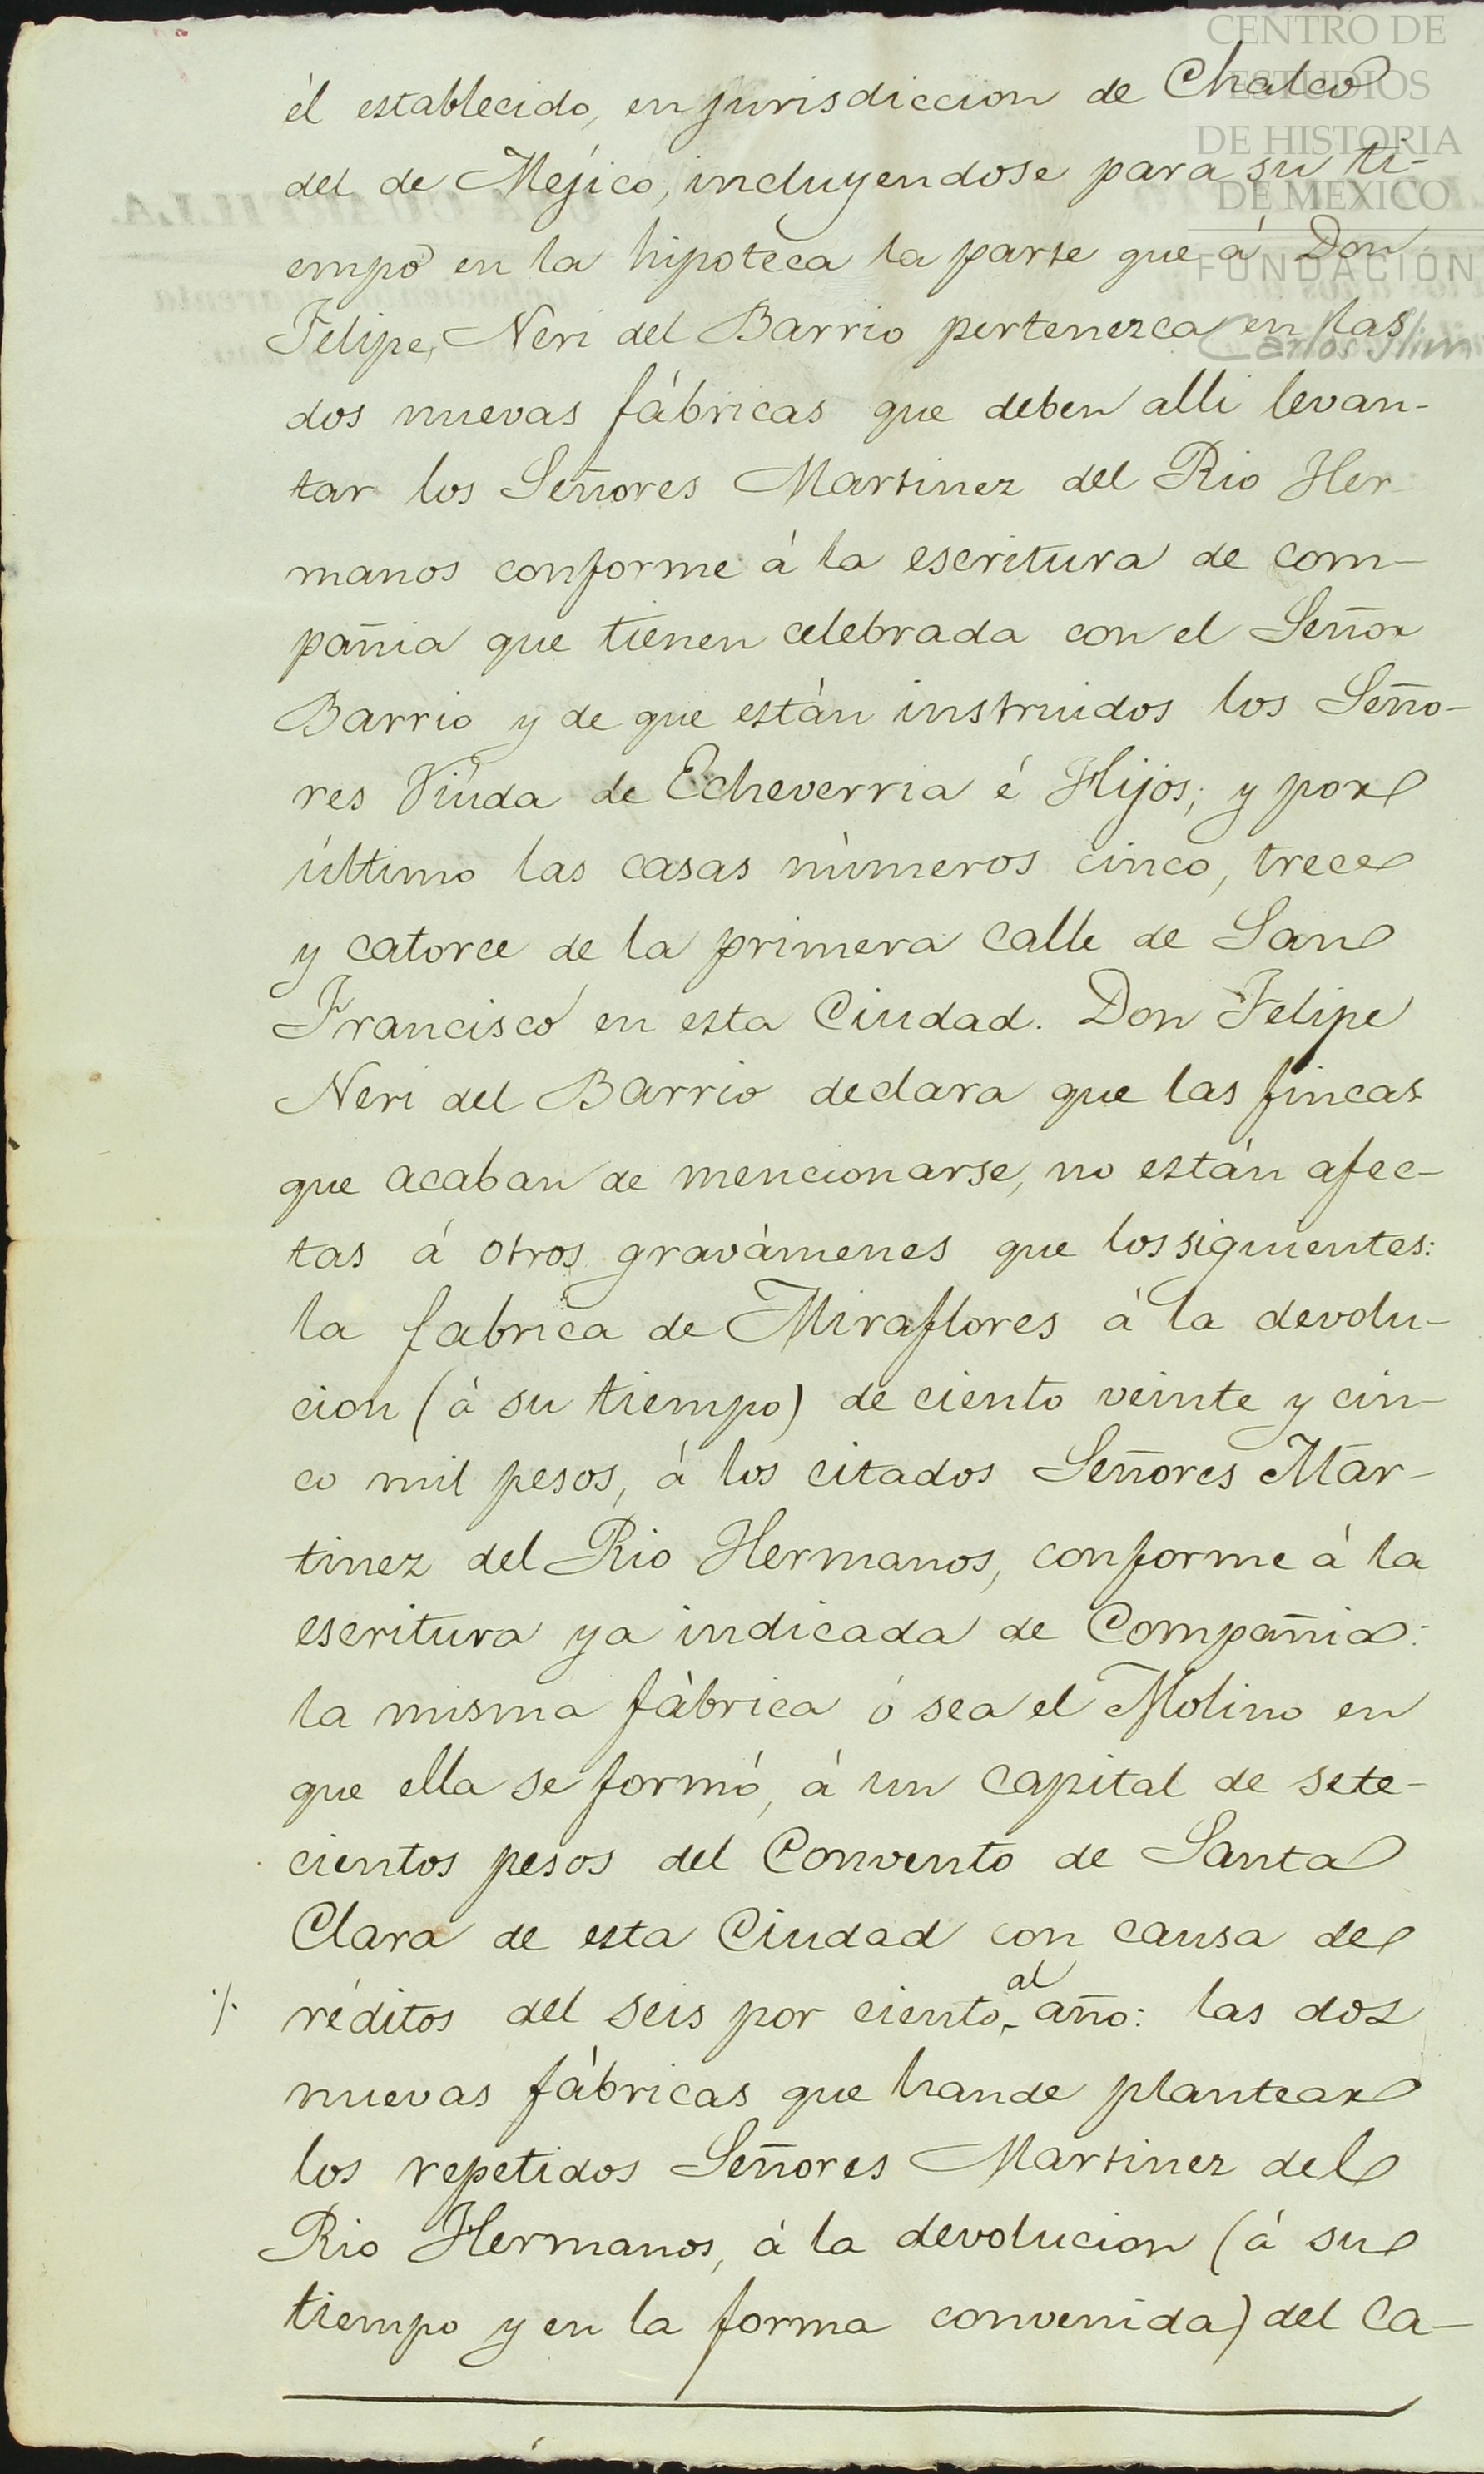 CENTRO DE
ESTUDIOS
DE HISTORIA
DE MEXICO
FUNDACIÓN
Carlos Slim
él establecido, en jurisdiccion de Chalco
del de Méjico, incluyendose para su ti-
empo en la hipoteca la parte que á Don
Felipe Neri del Barrio pertenezca en las
dos nuevas fábricas que deben alli levan-
tar los Señores Martinez del Rio Her
manos conforme á la escritura de com-
pañia que tienen celebrada con el Señor
Barrio y de que están instruidos los Seño-
res Viuda de Echeverria é Hijos; y por
último las casas números cinco, trece
y catorce de la primera calle de San
Francisco en esta Ciudad. Don Felipe
Neri del Barrio declara que las fincas
que acaban de mencionarse, no están afec-
tas á otros gravámenes que los siguientes:
la fabrica de Miraflores á la devolu-
cion (á su tiempo) de ciento veinte y cin-
co mil pesos, á los citados Señores Mar-
tinez del Rio Hermanos, conforme á la
escritura ya indicada de Compañia:
la misma fábrica ó sea el Molino en
que ella se formó, á un capital de sete-
cientos pesos del Convento de Santa
Clara de esta Ciudad con causa de
·/. réditos del seis por ciento al año: las dos
nuevas fábricas que hande plantear
los repetidos Señores Martinez del
Rio Hermanos, á la devolucion (á su
tiempo y en la forma convenida) del ca-